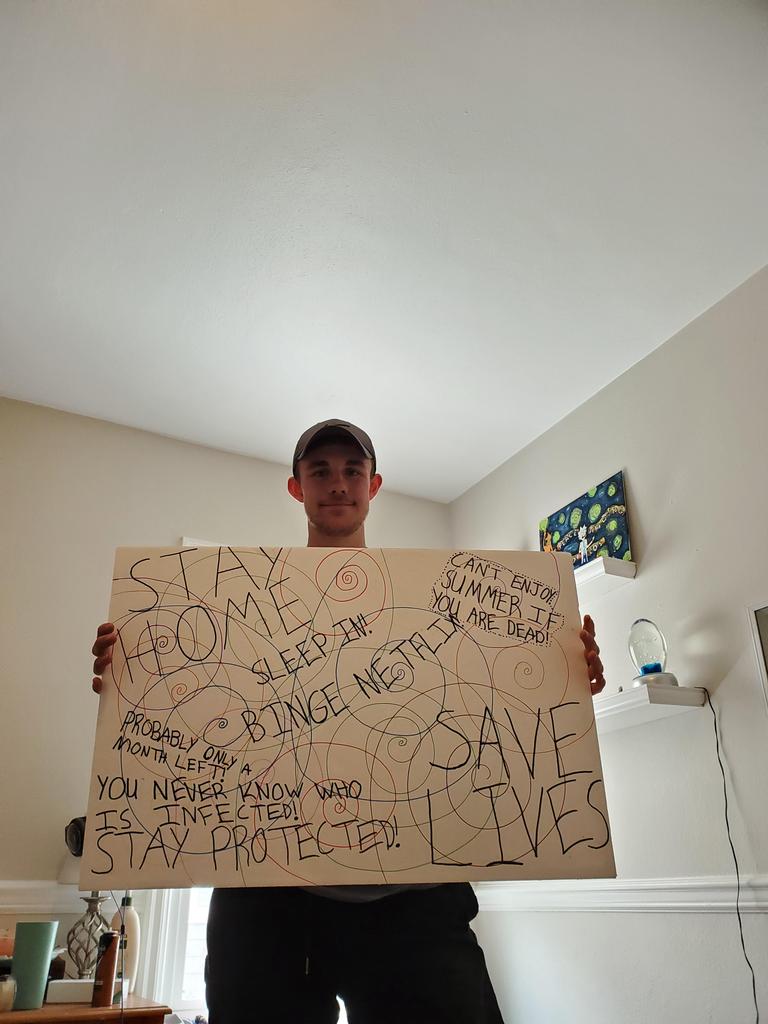 STAY
HOME
SLEEP IN!
BINGE NETFLIX
CAN'T ENJOY
SUMMER IF
YOU ARE DEAD!
PROBABLY ONLY A
MONTH LEFT!
YOU NEVER KNOW WHO
IS INFECTED!
STAY PROTECTED!
SAVE
LIVES